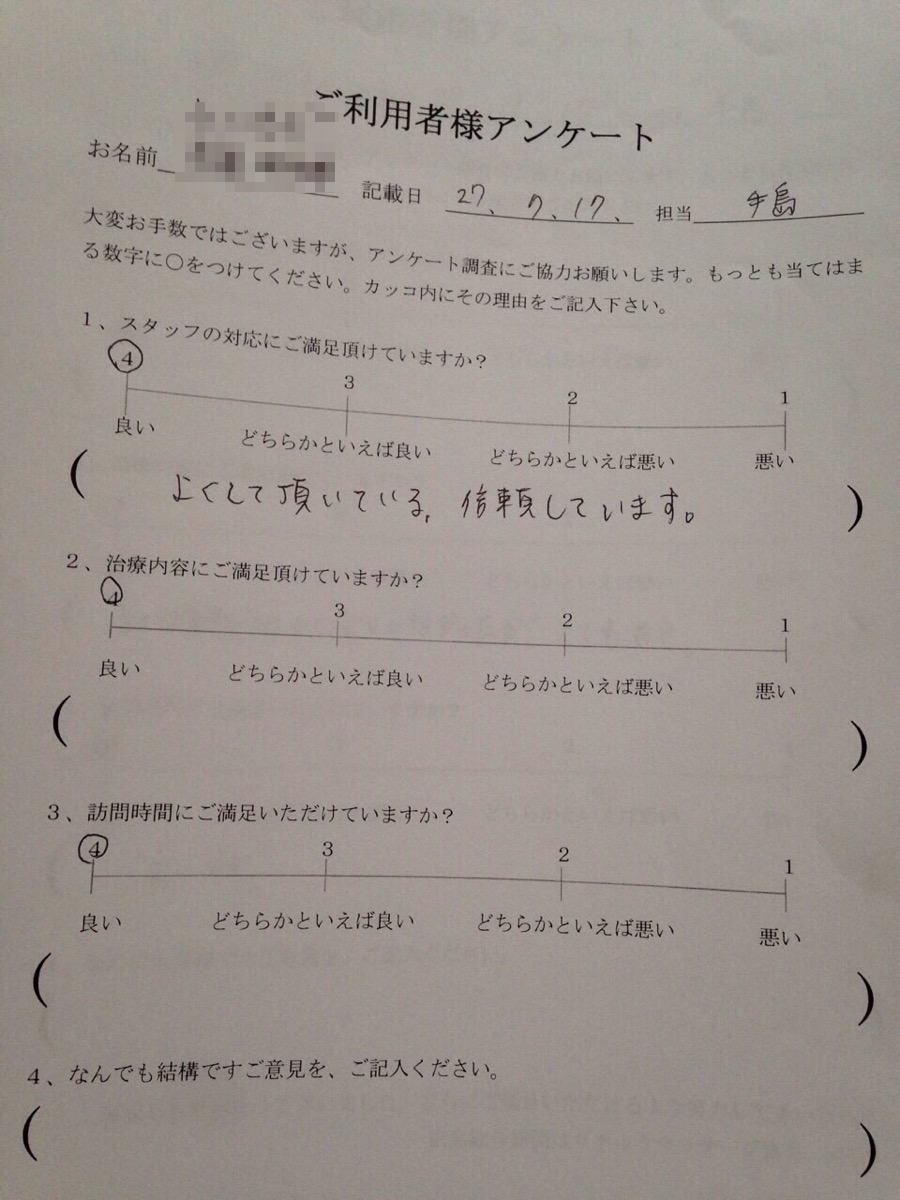 ご利用者様アンケート
お名前 記載日 27、7、17、 担当 手島
大変お手数ではございますが、アンケート調査にご協力お願いします。もっとも当てはま
る数字に○をつけてください。カッコ内にその理由をご記入下さい。
1、スタッフの対応にご満足頂けていますか?
4 3 2 1
良い どちらかといえば良い どちらかといえば悪い 悪い
( よくして頂いている, 信頼しています。 )
2、治療内容にご満足頂けていますか?
4 3 2 1
良い どちらかといえば良い どちらかといえば悪い 悪い
( )
3、訪問時間にご満足いただけていますか?
4 3 2 1
良い どちらかといえば良い どちらかといえば悪い 悪い
( )
4、なんでも結構ですご意見を、ご記入ください。
( )